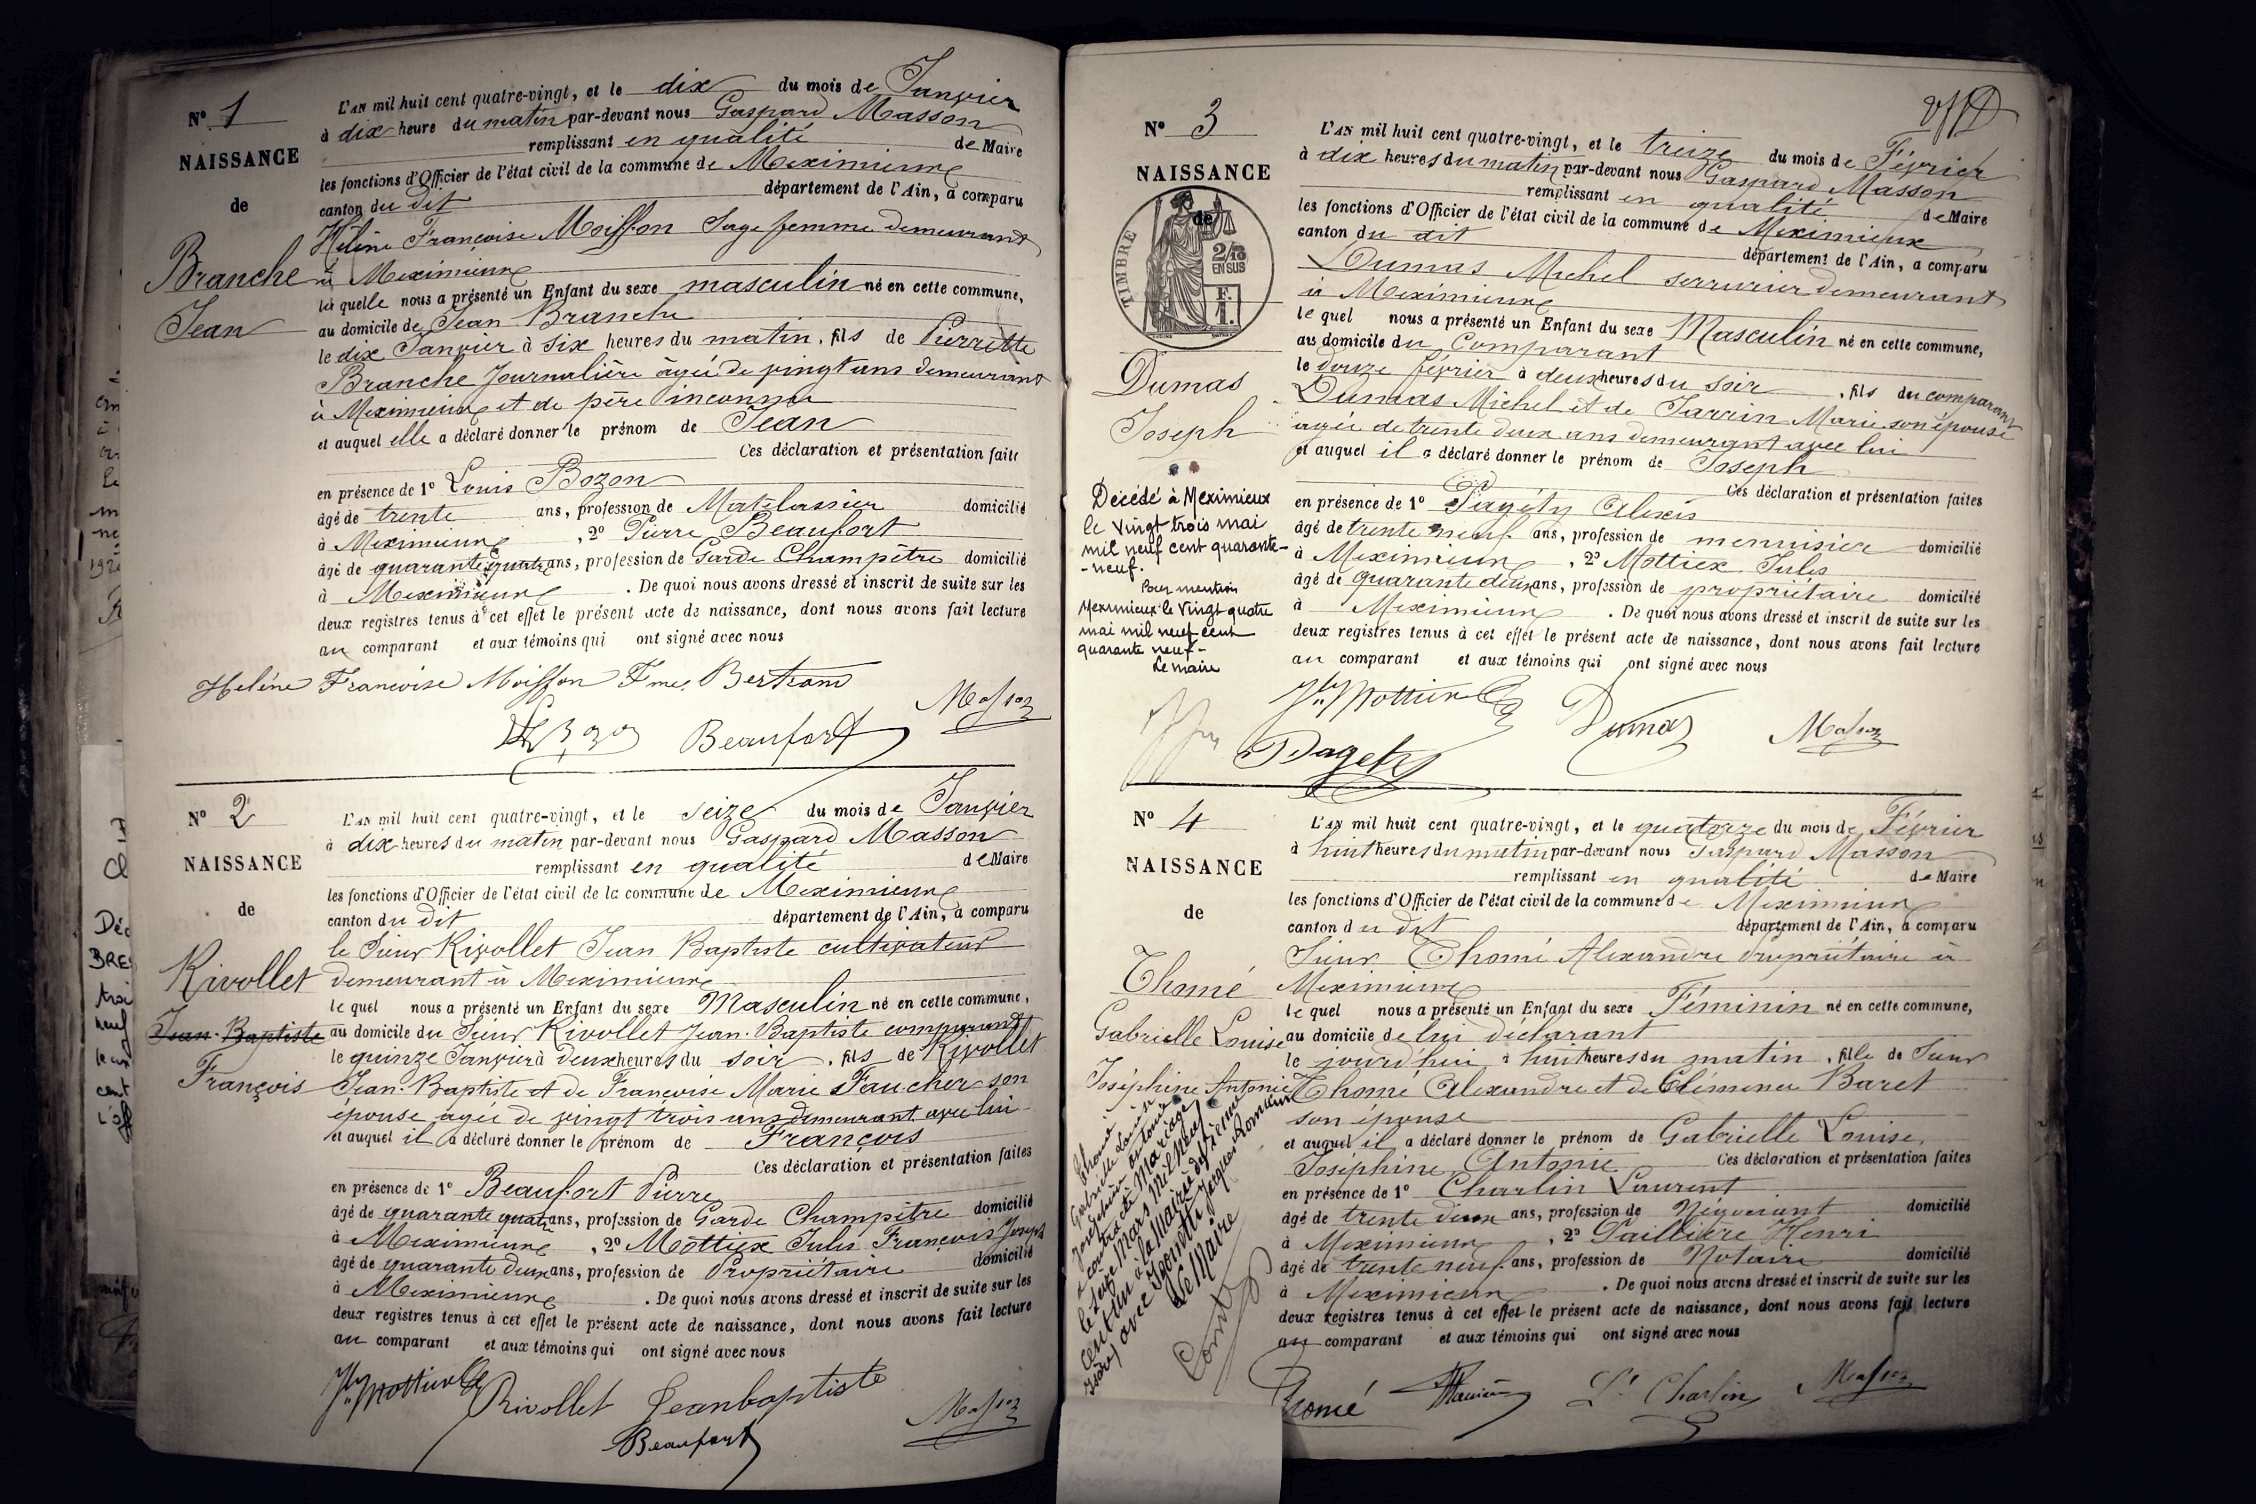 N° 1
NAISSANCE
de
Branche
Jean
L'AN mil huit cent quatre-vingt, et le dix du mois de Janvier
à dix heure du matin par-devant nous Gaspard Masson
remplissant en qualité de Maire
les fonctions d'Officier de l'état civil de la commune de Meximieux
canton du dit département de l'Ain, a comparu
Hélène Françoise Moisson Sage femme demeurant
à Meximieux
laquelle nous a présenté un Enfant du sexe masculin né en cette commune,
au domicile de Jean Branche
le dix Janvier à six heures du matin, fils de Pierrette
Branche Journalière âgée de vingt ans demeurant
à Meximieux et de père inconnu
et auquel elle a déclaré donner le prénom de Jean
Ces déclaration et présentation faite
en présence de 1° Louis Bozon
âgé de trente ans, profession de Matelassier domicilié
à Meximieux, 2° Pierre Beaufort
âgé de quarante quatre ans, profession de Garde Champêtre domicilié
à Meximieux. De quoi nous avons dressé et inscrit de suite sur les
deux registres tenus à cet effet le présent acte de naissance, dont nous avons fait lecture
au comparant et aux témoins qui ont signé avec nous
Heléne Francoise Moisson Fme Bertrand
Masson
Bozon Beaufort
N° 2
NAISSANCE
de
Rivollet
Jean-Baptiste
François
L'AN mil huit cent quatre-vingt, et le seize du mois de Janvier
à dix heures du matin par-devant nous Gaspard Masson
remplissant en qualité de Maire
les fonctions d'Officier de l'état civil de la commune de Meximieux
canton du dit département de l'Ain, a comparu
le Sieur Rivollet Jean Baptiste cultivateur
demeurant à Meximieux
lequel nous a présenté un Enfant du sexe Masculin né en cette commune,
au domicile du Sieur Rivollet Jean-Baptiste comparant
le quinze Janvier à deux heures du soir, fils de Rivollet
Jean-Baptiste et de Françoise Marie Faucher son
épouse agée de vingt trois ans demeurant avec lui
et auquel il a déclaré donner le prénom de François
Ces déclaration et présentation faites
en présence de 1° Beaufort Pierre
âgé de quarante quatre ans, profession de Garde Champêtre domicilié
à Meximieux, 2° Mottiex Jules François Joseph
âgé de quarante deux ans, profession de Propriétaire domicilié
à Meximieux. De quoi nous avons dressé et inscrit de suite sur les
deux registres tenus à cet effet le présent acte de naissance, dont nous avons fait lecture
au comparant et aux témoins qui ont signé avec nous
Rivollet Jeanbaptiste Masson
Beaufort
N° 3
NAISSANCE
de
TIMBRE
2/10
EN SUS
F.
1.
Dumas
Joseph
Décédé à Meximieux
le vingt trois mai
mil neuf cent quarante-
-neuf.
Pour mention
Meximieux le vingt quatre
mai mil neuf cent
quarante neuf-
Le maire
L'AN mil huit cent quatre-vingt, et le treize du mois de Février
à dix heures du matin par-devant nous Gaspard Masson
remplissant en qualité de Maire
les fonctions d'Officier de l'état civil de la commune de Meximieux
canton du dit département de l'Ain, a comparu
Dumas Michel serrurier demeurant
à Meximieux
lequel nous a présenté un Enfant du sexe Masculin né en cette commune,
au domicile du Comparant
le douze février à deux heures du soir, fils du comparant
Dumas Michel et de Jarrin Marie son épouse
agée de trente deux ans demeurant avec lui
et auquel il a déclaré donner le prénom de Joseph
Ces déclaration et présentation faites
en présence de 1° Pagéty Alexis
âgé de trente neuf ans, profession de menuisier domicilié
à Meximieux, 2° Mottiex Jules
âgé de quarante deux ans, profession de propriétaire domicilié
à Meximieux. De quoi nous avons dressé et inscrit de suite sur les
deux registres tenus à cet effet le présent acte de naissance, dont nous avons fait lecture
au comparant et aux témoins qui ont signé avec nous
Dumas Masson
N° 4
NAISSANCE
de
Thomé
Gabrielle Louise
Joséphine Antonie
Thomé
Gabrielle Louise
Joséphine Antonie
a contracté Mariage
le seize Mars Mil Neuf
cent un à la Mairie de
avec
Le Maire
L'AN mil huit cent quatre-vingt, et le quatorze du mois de Février
à huit heures du matin par-devant nous Gaspard Masson
remplissant en qualité de Maire
les fonctions d'Officier de l'état civil de la commune de Meximieux
canton du dit département de l'Ain, a comparu
Sieur Thomé Alexandre propriétaire à
Meximieux
lequel nous a présenté un Enfant du sexe Féminin né en cette commune,
au domicile de lui déclarant
le jourd'hui à huit heures du matin, fille de Sieur
Thomé Alexandre et de Clémence Baret
son épouse
et auquel il a déclaré donner le prénom de Gabrielle Louise,
Joséphine, Antonie Ces déclaration et présentation faites
en présence de 1° Charlin Laurent
âgé de trente deux ans, profession de Négociant domicilié
à Meximieux, 2° Paillière Henri
âgé de trente neuf ans, profession de Notaire domicilié
à Meximieux. De quoi nous avons dressé et inscrit de suite sur les
deux registres tenus à cet effet le présent acte de naissance, dont nous avons fait lecture
au comparant et aux témoins qui ont signé avec nous
Thomé Lt Charlin Masson